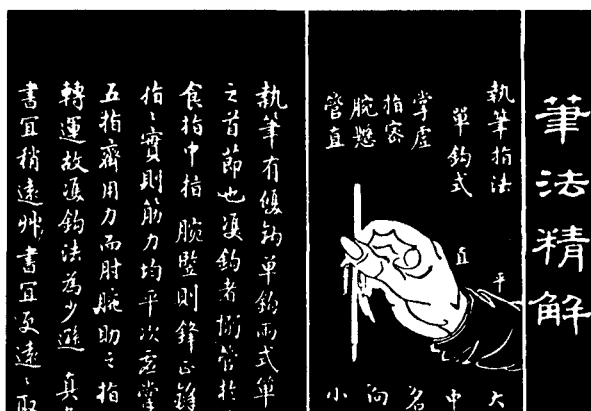 筆法精解
執筆指法
單鈎式
掌虛
指密
腕懸
管直
平
直
大
中
名
向
小
執筆有雙鈎單鈎兩式單
之首節也雙鈎者擫管於
食指中指腕豎則鋒正鋒
指〻實則筋力均平次虛掌
五指齊用力而肘腕助之指
轉運故雙鈎法為少遜真
書宜稍遠艸書宜更遠〻取